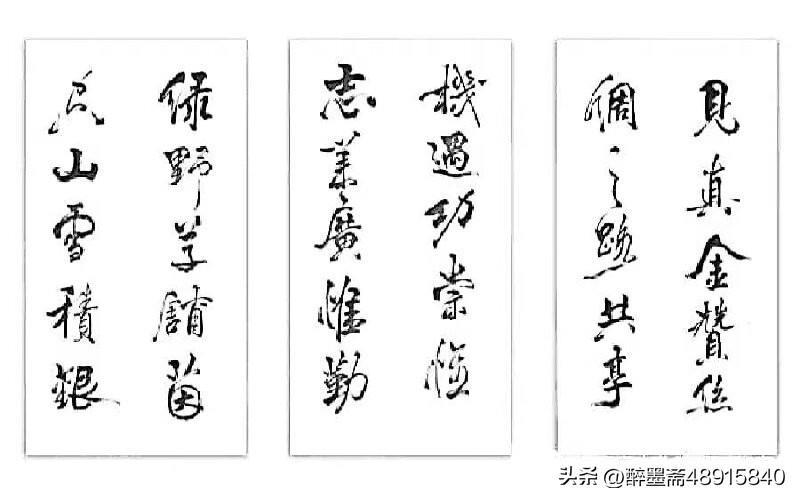 見真金贊絲
綢之路共享
機遇功崇惟
志業廣惟勤
緑野草舖茵
空山雪積銀
头条 @醉墨斋48915840